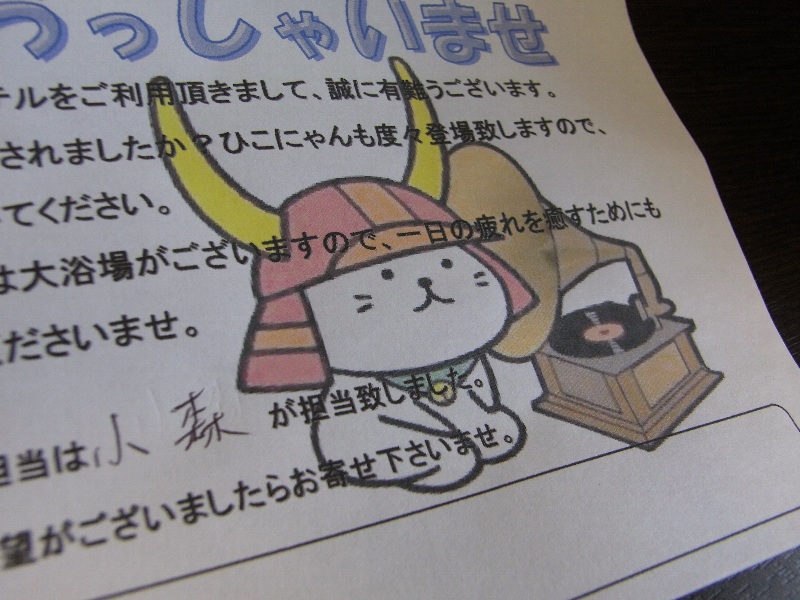 っしゃいませ
テルをご利用頂きまして、誠に有難うございます。
されましたか？ひこにゃんも度々登場致しますので、
てください。
は大浴場がございますので、一日の疲れを癒すためにも
くださいませ。
担当は小森が担当致しました。
望がございましたらお寄せ下さいませ。